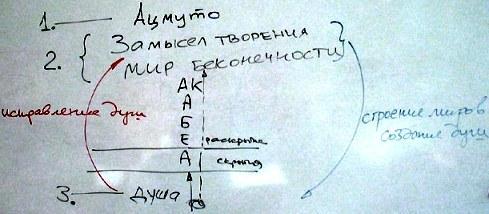 1. Ацмуто
2. Замысел творения
мир бесконечности
АК
А
Б
Е
раскрытие
А
скрытия
исправление души
строение миров
создание души
3. душа